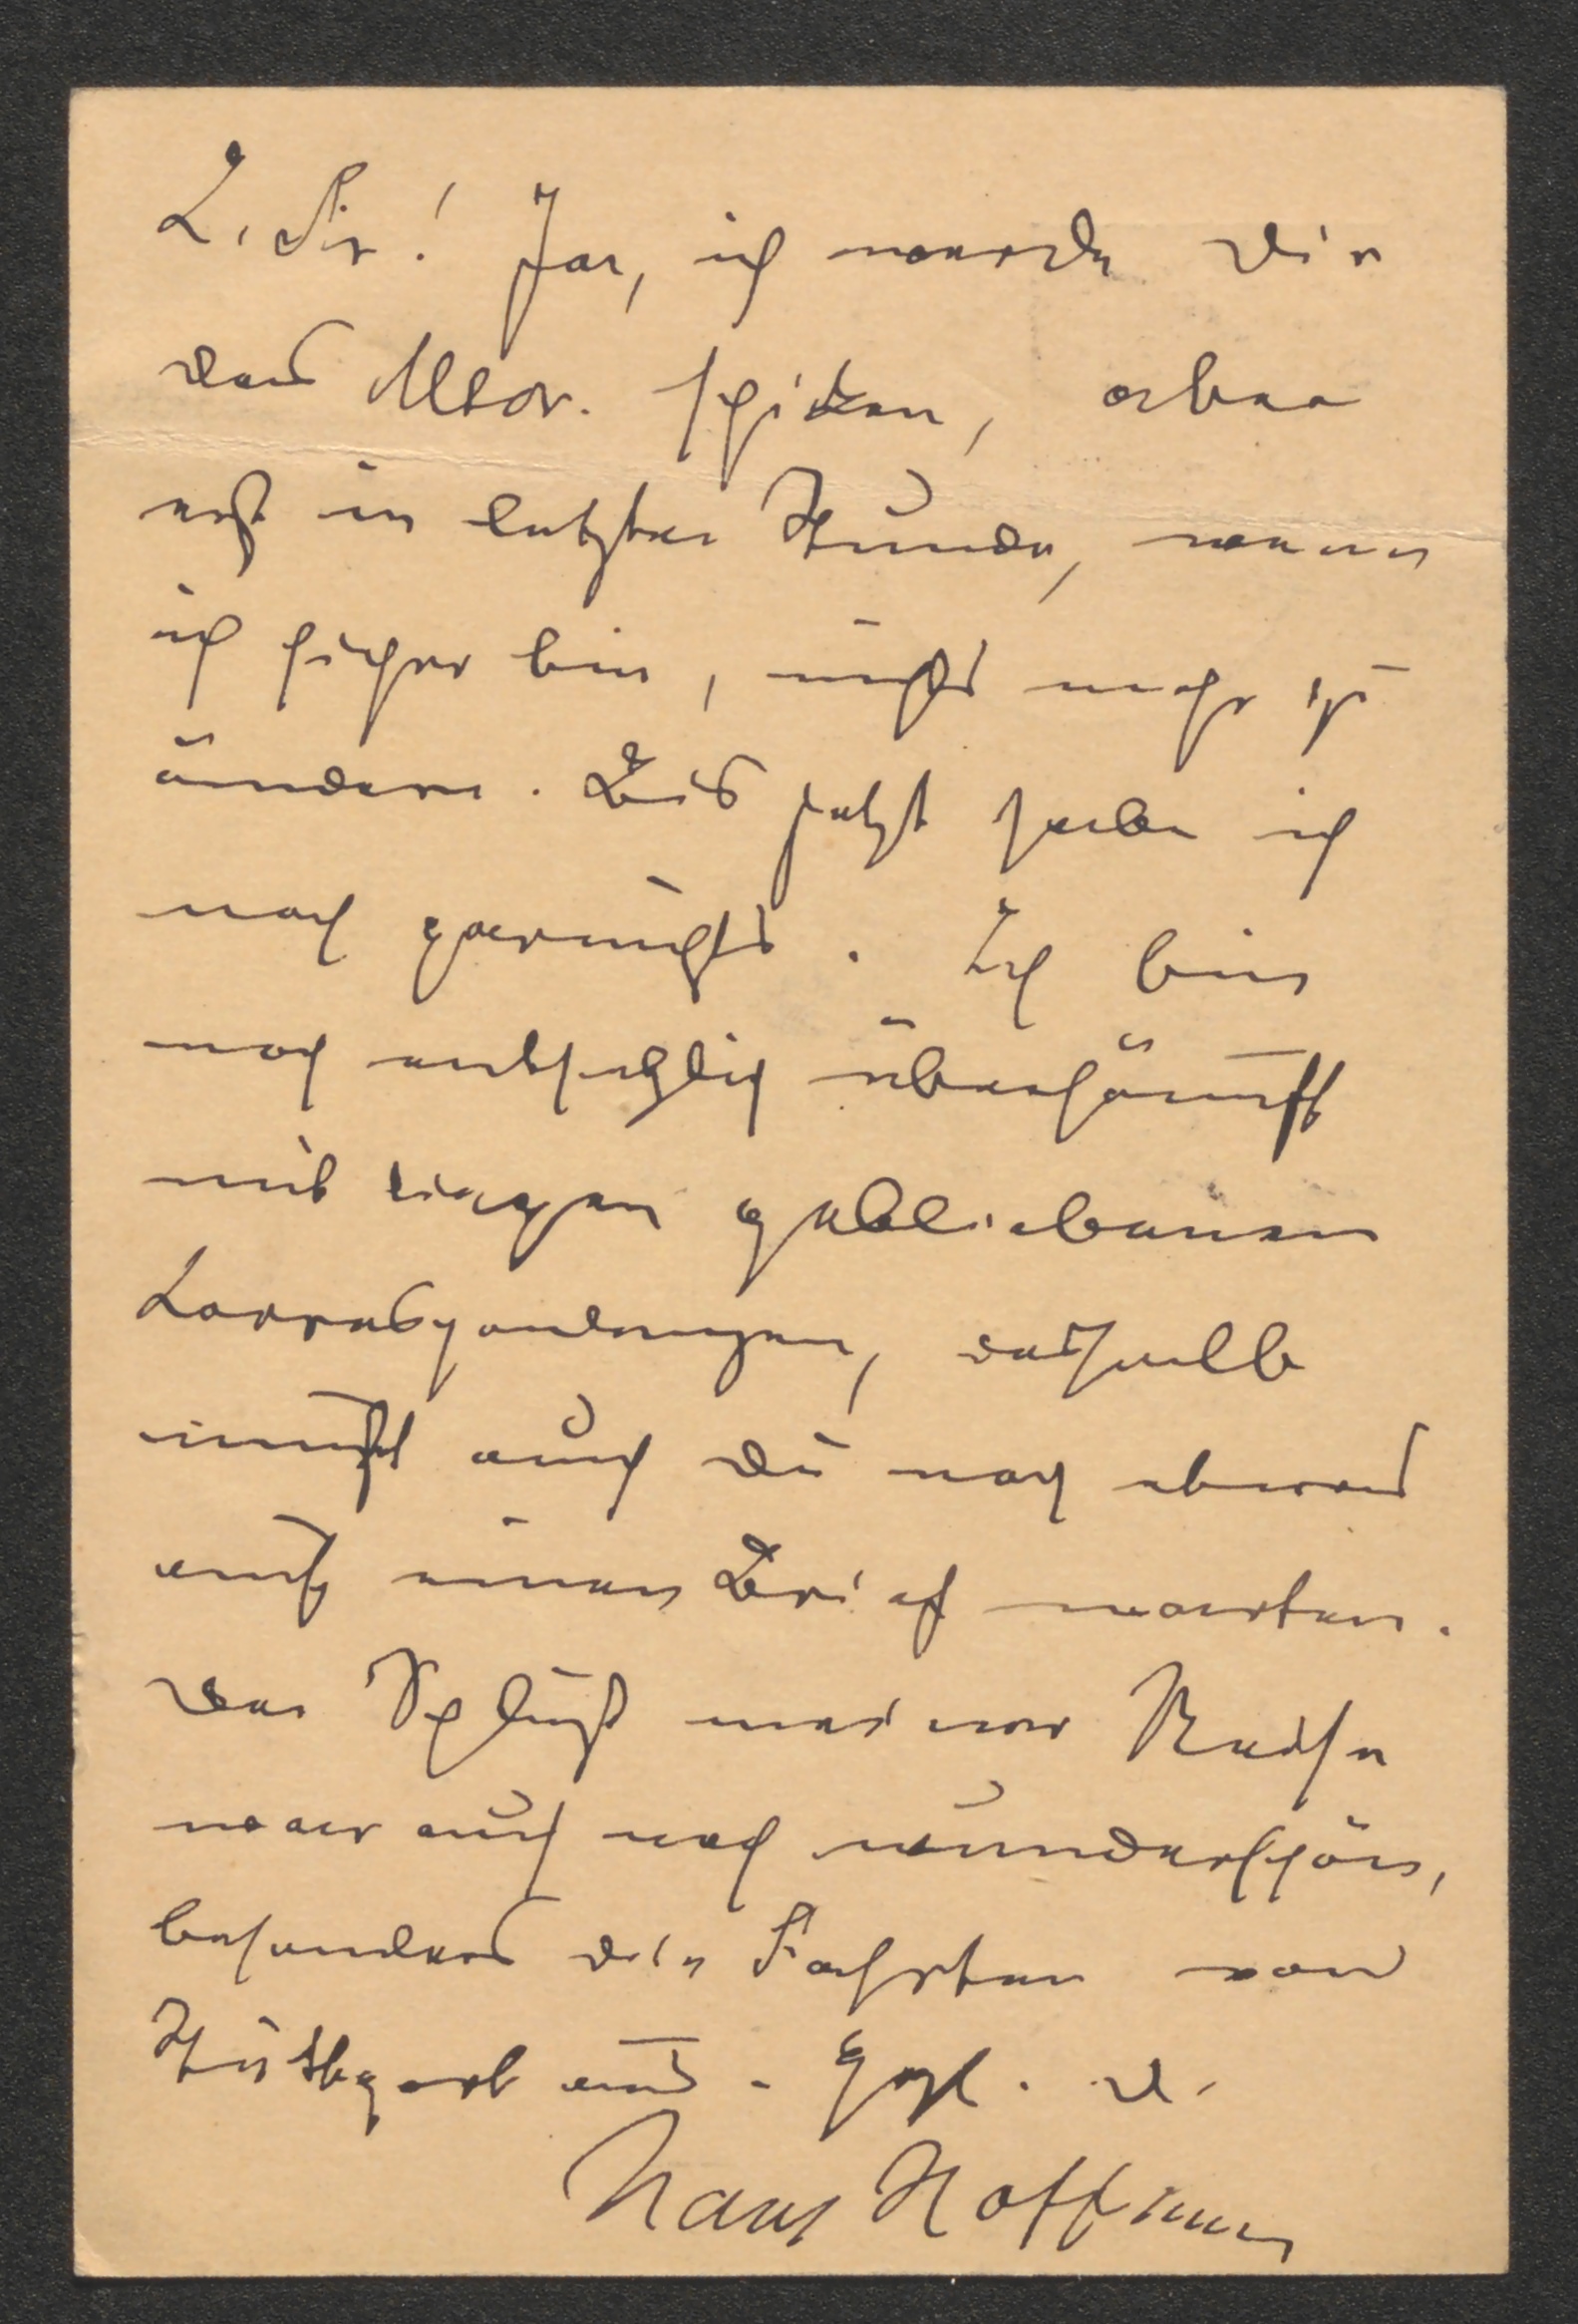 L. Sir! Ja, ich werde Dir
das Mscr. schicken, aber
erst in letzter Stunde, wenn
ich sicher bin, nichts mehr zu
ändern. Bis jetzt habe ich
noch gar nichts. Ich bin
noch entsetzlich überhäuft
mit liegen gebliebenen
Correspondenzen, deshalb
mußt auch Du noch etwas
auf einen Brief warten.
Der Schluß meiner Reise
war auch noch wunderschön,
besonders die Fahrten von
Stuttgart aus. Hrzl. D.
Hans Hoffmann